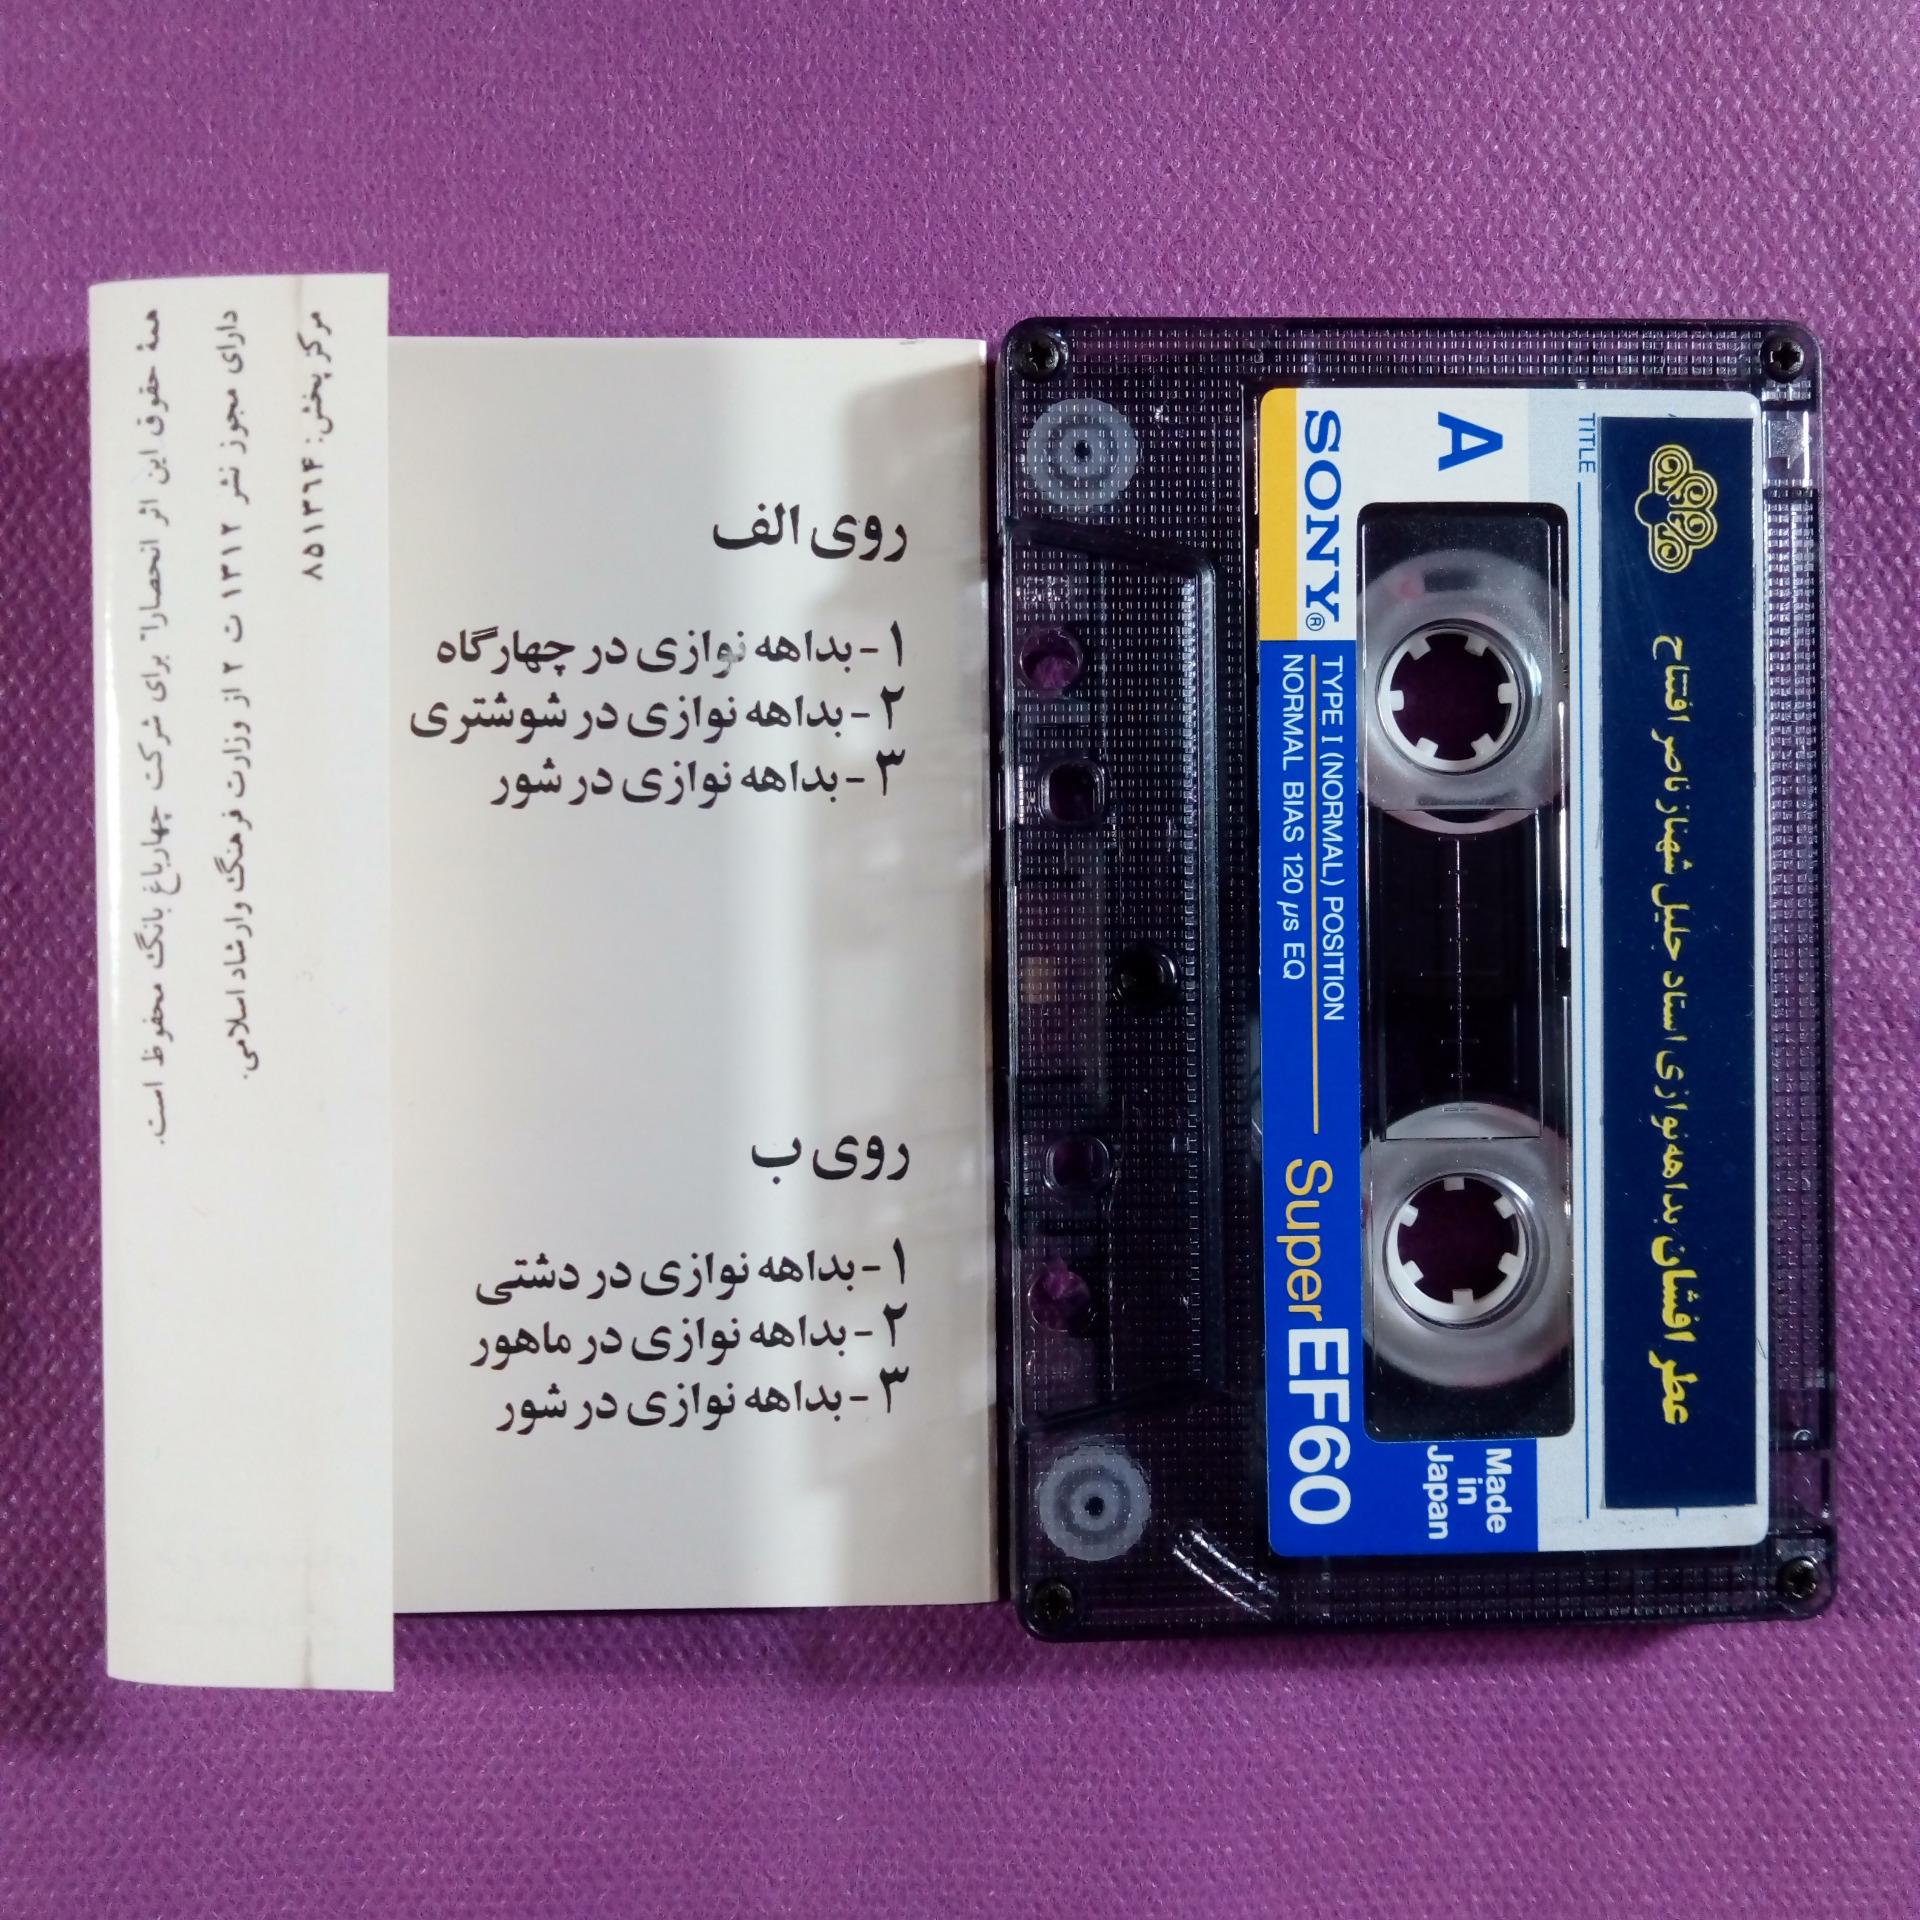 همهٔ حقوق این اثر انحصاراً برای شرکت چهارباغ بانگ محفوظ است.
دارای مجوز نشر ۱۳۱۲ ت ۲ از وزارت فرهنگ و ارشاد اسلامی.
مرکز پخش: ۸۵۱۳۶۴
روی الف
۱- بداهه نوازی در چهارگاه
۲- بداهه نوازی در شوشتری
۳- بداهه نوازی در شور
روی ب
۱- بداهه نوازی در دشتی
۲- بداهه نوازی در ماهور
۳- بداهه نوازی در شور
TITLE
عطر افشان بداهه‌نوازی استاد جلیل شهناز ناصر افتتاح
A
Made
in
Japan
SONY®
TYPE I (NORMAL) POSITION
NORMAL BIAS 120 µs EQ
Super EF60